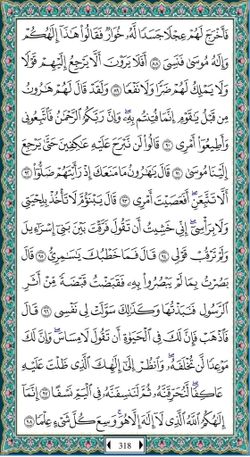 فَأَخْرَجَ لَهُمْ عِجْلًا جَسَدًا لَّهُۥ خُوَارٌ فَقَالُوا۟ هَٰذَآ إِلَٰهُكُمْ
وَإِلَٰهُ مُوسَىٰ فَنَسِىَ ٨٨ أَفَلَا يَرَوْنَ أَلَّا يَرْجِعُ إِلَيْهِمْ قَوْلًا
وَلَا يَمْلِكُ لَهُمْ ضَرًّا وَلَا نَفْعًا ٨٩ وَلَقَدْ قَالَ لَهُمْ هَٰرُونُ
مِن قَبْلُ يَٰقَوْمِ إِنَّمَا فُتِنتُم بِهِۦ ۖ وَإِنَّ رَبَّكُمُ ٱلرَّحْمَٰنُ فَٱتَّبِعُونِى
وَأَطِيعُوٓا۟ أَمْرِى ٩٠ قَالُوا۟ لَن نَّبْرَحَ عَلَيْهِ عَٰكِفِينَ حَتَّىٰ يَرْجِعَ
إِلَيْنَا مُوسَىٰ ٩١ قَالَ يَٰهَٰرُونُ مَا مَنَعَكَ إِذْ رَأَيْتَهُمْ ضَلُّوٓا۟ ٩٢
أَلَّا تَتَّبِعَنِ ۖ أَفَعَصَيْتَ أَمْرِى ٩٣ قَالَ يَبْنَؤُمَّ لَا تَأْخُذْ بِلِحْيَتِى
وَلَا بِرَأْسِىٓ ۖ إِنِّى خَشِيتُ أَن تَقُولَ فَرَّقْتَ بَيْنَ بَنِىٓ إِسْرَٰٓءِيلَ
وَلَمْ تَرْقُبْ قَوْلِى ٩٤ قَالَ فَمَا خَطْبُكَ يَٰسَٰمِرِىُّ ٩٥ قَالَ
بَصُرْتُ بِمَا لَمْ يَبْصُرُوا۟ بِهِۦ فَقَبَضْتُ قَبْضَةً مِّنْ أَثَرِ
ٱلرَّسُولِ فَنَبَذْتُهَا وَكَذَٰلِكَ سَوَّلَتْ لِى نَفْسِى ٩٦ قَالَ
فَٱذْهَبْ فَإِنَّ لَكَ فِى ٱلْحَيَوٰةِ أَن تَقُولَ لَا مِسَاسَ ۖ وَإِنَّ لَكَ
مَوْعِدًا لَّن تُخْلَفَهُۥ ۖ وَٱنظُرْ إِلَىٰٓ إِلَٰهِكَ ٱلَّذِى ظَلْتَ عَلَيْهِ
عَاكِفًا ۖ لَّنُحَرِّقَنَّهُۥ ثُمَّ لَنَنسِفَنَّهُۥ فِى ٱلْيَمِّ نَسْفًا ٩٧ إِنَّمَآ
إِلَٰهُكُمُ ٱللَّهُ ٱلَّذِى لَآ إِلَٰهَ إِلَّا هُوَ ۚ وَسِعَ كُلَّ شَىْءٍ عِلْمًا ٩٨
318